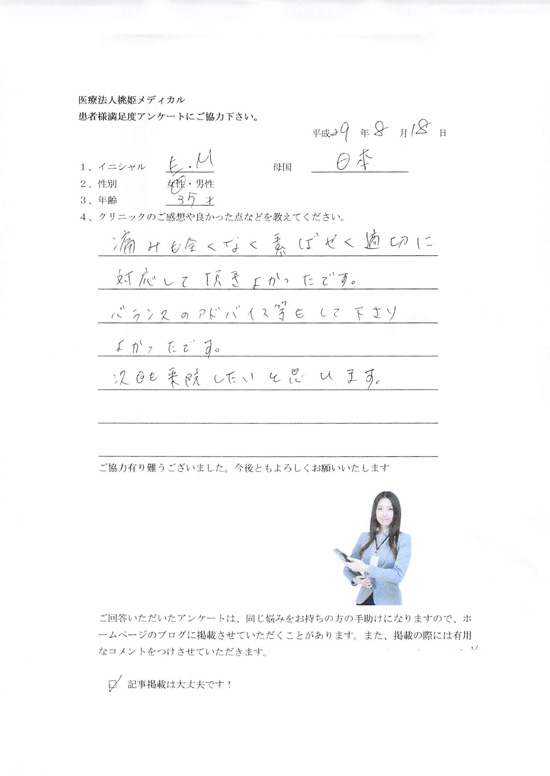 医療法人桃姫メディカル
患者様満足度アンケートにご協力下さい。
平成29年8月18日
1、イニシャル E.M 母国 日本
2、性別 女性・男性
3、年齢 35才
4、クリニックのご感想や良かった点などを教えてください。
痛みも全くなく素ばやく適切に
対応して頂きよかったです。
バランスのアドバイス等もして下さり
よかったです。
次回も来院したいと思います。
ご協力有り難うございました。今後ともよろしくお願いいたします
ご回答いただいたアンケートは、同じ悩みをお持ちの方の手助けになりますので、ホ
ームページのブログに掲載させていただくことがあります。また、掲載の際には有用
なコメントをつけさせていただきます。
記事掲載は大丈夫です！